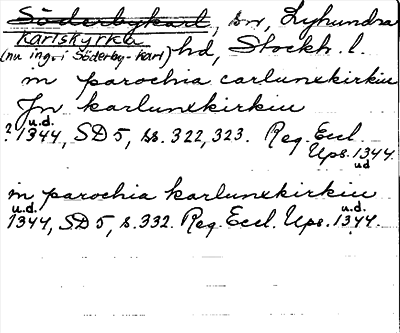 Söderbykarl, sn, Lyhundra
Karlskyrka
(nu ing. i Söderby-Karl) hd, Stockh. l.
in parochia carlunxkirkiu
Jn karlunxkirkiu
u.d.
? 1344, SD 5, ss. 322, 323. Reg. Eccl.
Ups. 1344.
ud
in parochia karlunxkirkiu
u.d. u.d.
1344, SD 5, s. 332. Reg. Eccl. Ups. 1344.